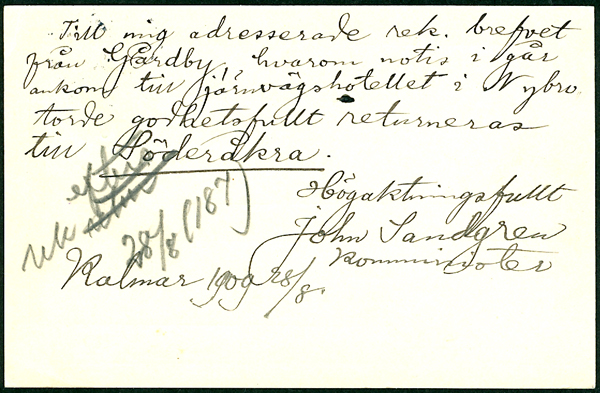 Till mig adresserade rek. brefvet
från Gårdby, hvarom notis i går
ankom till järnvägshotellet i Nybro
torde godhetsfullt returneras
till Söderåkra.
Högaktningsfullt
John Sandgren
Komminister
Kalmar 1909 28/8.
rek
28/8 (187)